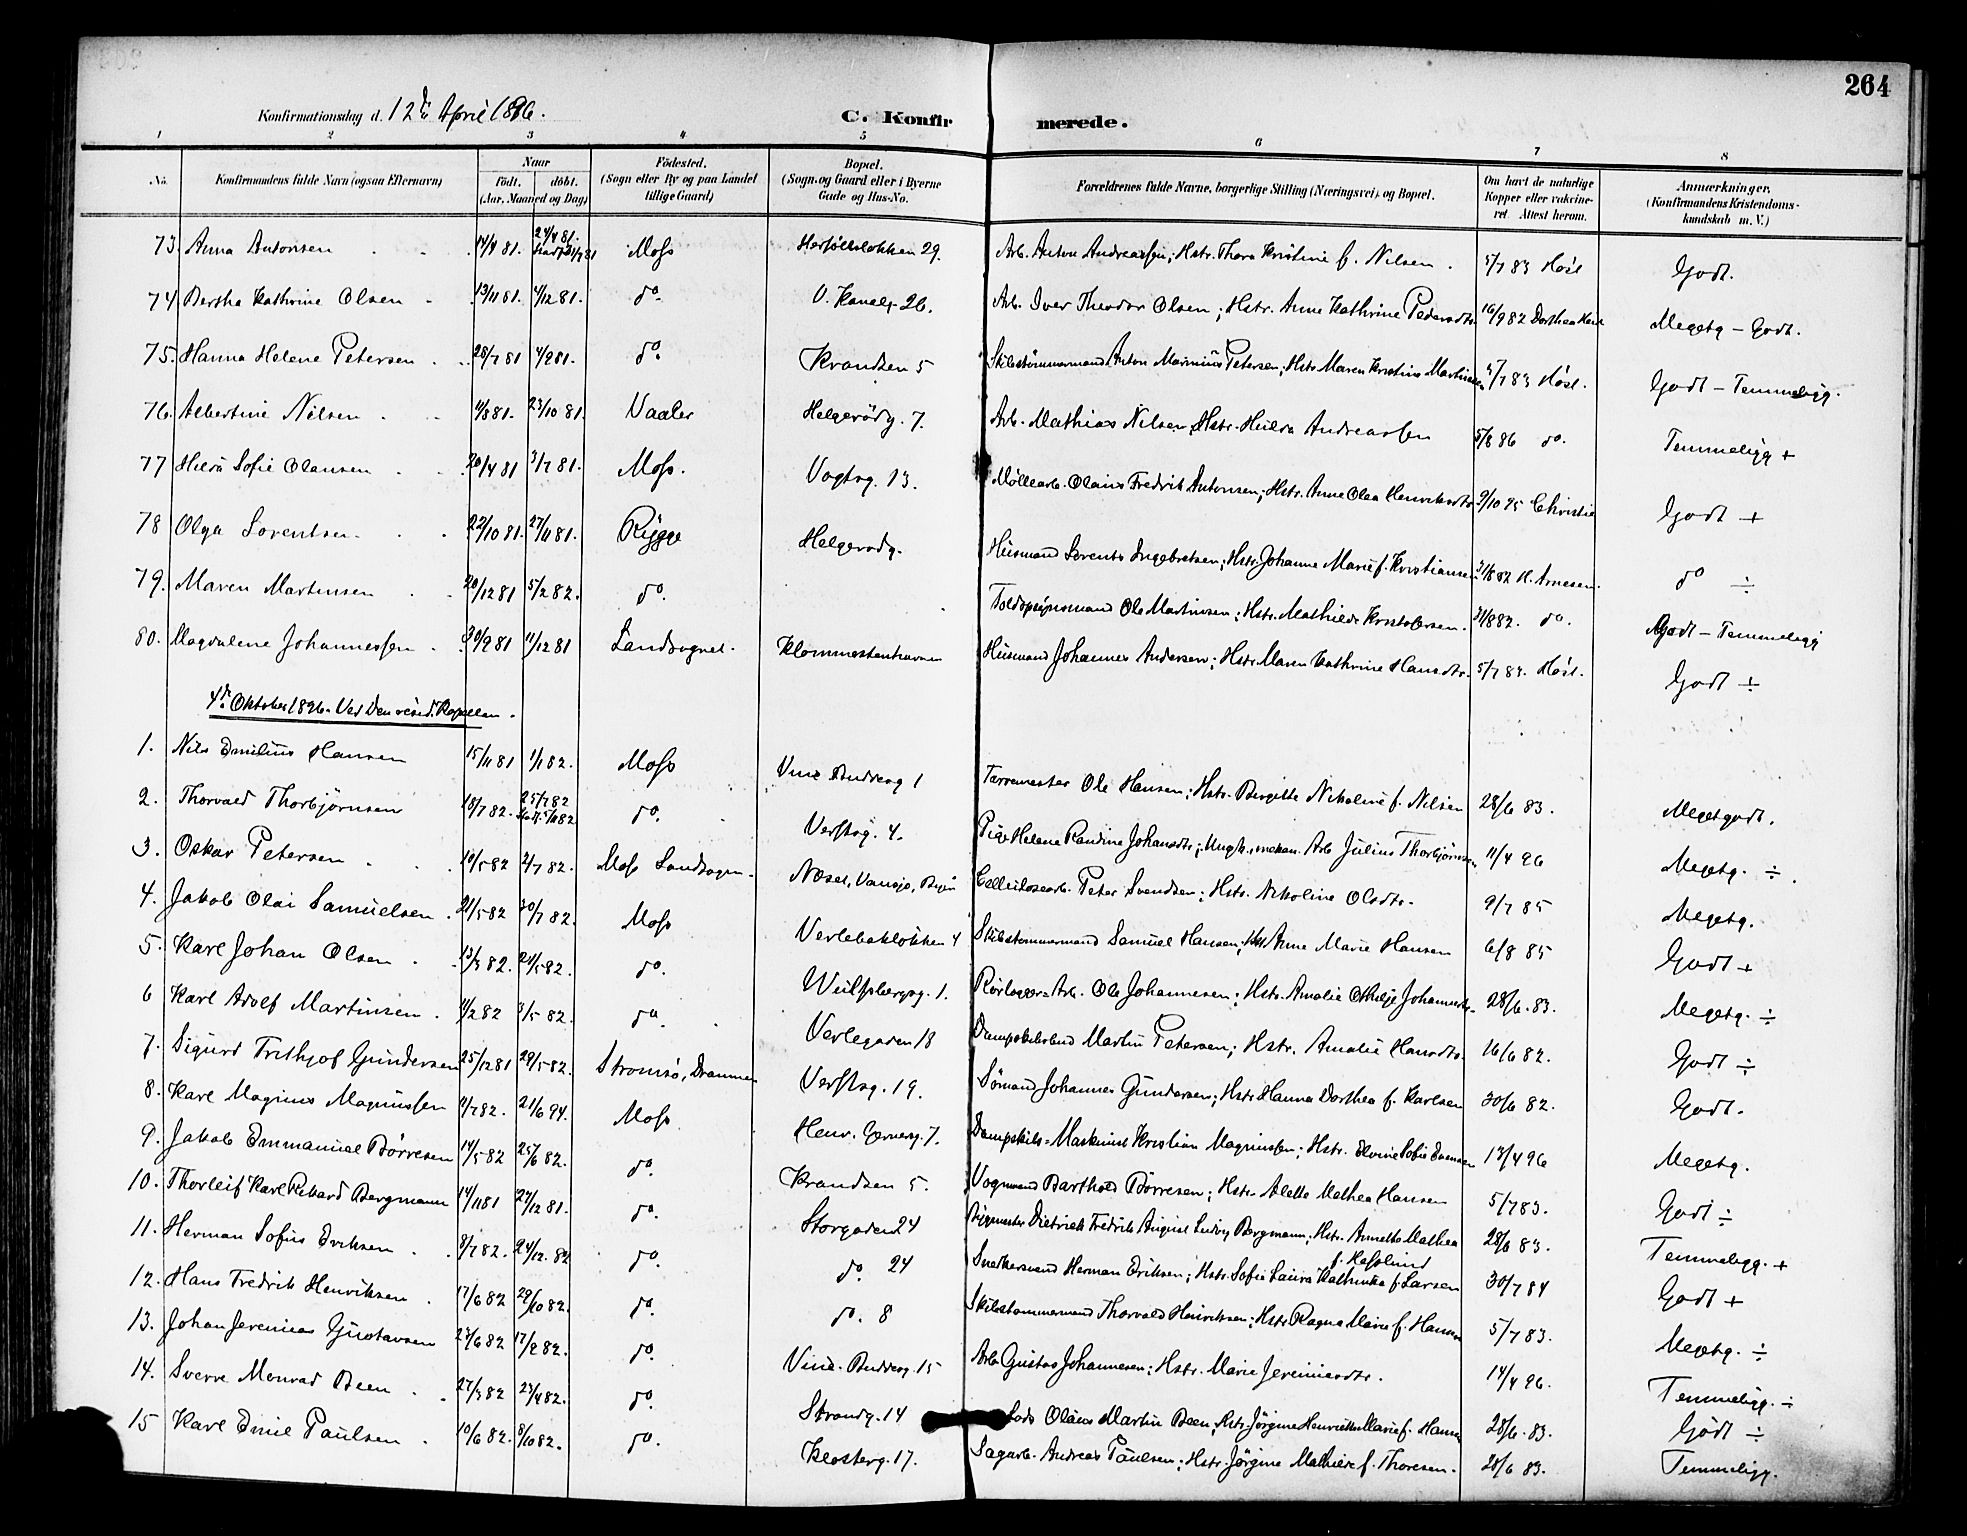 264
Konfirmationsdag d. 12te April 1896.
C. Konfirmerede.
1 2 3 4 5 6 7 8
No. Konfirmandens fulde Navn (ogsaa Efternavn) Naar födt. döbt. (Aar, Maaned og Dag) Födested. (Sogn eller By og paa Landet tillige Gaard) Bopæl. (Sogn og Gaard eller i Byerne Gade og Hus-No. Forældrenes fulde Navne, borgerlige Stilling (Næringsvei) og Bopæl. Om havt de naturlige Kopper eller vakcineret. Attest herom. Anmærkninger. (Konfirmandens Kristendomskundskab m. V.)
73. Anna Antonsen 14/4 81. 24/4 81. Moss 29. Arb. Anton Andreassen; Hstr. Thora Kristine f. Nilsen. 5/7 83 Høst Godt.
74 Bertha Kathrine Olsen 13/11 81. 4/12 81. do. V. Kanalg. 26. Arb. Iver Theodor Olsen; Hstr. Anne Kathrine Pedersdtr. 16/9 82 Dorthea Meget g - Godt.
75. Hanna Helene Petersen 28/7 81 4/9 81. do. Krandsen 5 Skibstømmermand Anton Marinius Petersen; Hstr. Maren Kristine Martinsen 5/7 83 Høst. Godt - Temmeligg.
76. Albertine Nilsen 4/8 81. 23/10 81. Vaaler Helgerødg. 7. Arb. Mathias Nilsen, Hstr. Hulda Andreassen 5/8 86 do. Temmeligg +
77 Hilda Sofie Olausen 20/4 81 3/7 81. Moss. Vogtsg. 13. Møllearb. Olaus Fredrik Antonsen; Hstr. Anne Olea Henriksdtr. 9/10 95 Christie Godt +
78 Olga Lorentsen. 22/10 81. 27/11 81. Rygge Helgerødg. Husmand Lorents Ingebretsen; Hstr. Johanne Marie f. Kristiansen 31/8 82 K. Arnesen. do ÷
79. Maren Martinsen 20/12 81 5/2 82. do. Toldopsynsmand Ole Martinsen; Hstr. Mathilde Kristofersen. 31/8 82. do. Godt - Temmeligg
80. Magdalene Johannessen 30/9 81 11/12 81 Landsognet. Klommestenhavnen Husmand Johannes Andersen; Hstr. Maren Kathrine Hansdtr. 5/7 83. Høst. Godt ÷
4de Oktober 1896. Ved den resid. Kapellan.
1. Nils Emilius Hansen 15/11 81 1/1 82. Moss Vinc. Buddesg 1 Farvemester Ole Hansen; Hstr. Birgitte Nikoline f. Nilsen 28/6 83. Megetgodt.
2. Thorvald Thorbjørnsen 18/7 82. 25/7 82 do. Verftsg. 4. Pige Helene Randine Johansdtr; Ungk., mekan. Arb. Julius Thorbjørnsen 11/4 96 Megetg. ÷.
3. Oskar Petersen 10/5 82 2/7 82. Moss Landsogn. Næset, Vansjø, Byen Cellulosearb. Peter Svendsen; Hstr. Nikoline Olsdtr. 9/7 85 Megetg.
4. Jakob Olai Samuelsen. 21/5 82 30/7 82. Moss Verlebakløkken 4 Skibstømmermand Samuel Hansen; Hst Anne Marie Hansen 6/8 85 Godt +
5. Karl Johan Olsen 13/3 82. 24/5 82. do. Wulfsbergsg. 1. Rørlægger=Arb. Ole Johannesen; Hstr. Amalie Othilje Johannesdtr. 28/6. 83. Megetg. ÷
6 Karl Adolf Martinsen. 4/2 82 /5 82. do. Verlegaden 18 Dampskibsbud Martin Petersen; Hstr. Amalie Hansdtr. 16/6 82. Godt ÷
7. Sigurd Frithjof Gundersen 25/12 81 29/5 82. Strømsø, Drammen Verftsg. 19. Sømand Johannes Gundersen; Hstr Hanna Dorthea f. Karlsen 30/6 82. Godt.
8. Karl Magnus Magnussen 4/7 82. 21/6 94. Moss Henr. Gernersg. 7. Dampskibs=Maskinist Kristian Magnussen; Hstr. Elvine Sofie Evensen 13/4 96 Megetg.
9. Jakob Emmanuel Børresen 14/5 82 25/6 82. do. Krandsen 5. Vognmand Barthold Børresen; Hstr. Alette Mathea Hansen 5/7 83. Godt ÷
10. Thorleif Karl Rikard Bergmann 14/11 81 27/12 81. do. Storgaden 24 Diedrich Fredrik August Ludvig Bergmann; Hstr. Annette Mathea f. Hesslund 28/6 83. Temmeligg. +
11. Herman Sofus Eriksen 8/7 82. 24/12. 82 do. do. 24 Snekkersvend Herman Eriksen; Hstr. Sofie Laura Kathinka f. Larsen 30/7 84 Godt +
12. Hans Fredrik Henriksen 17/6 82 29/10 82. do. do. 8 Skibstømmermand Thorvald Henriksen; Hstr. Ragna Marie f. Hansen 5/7 83. Megetg. ÷
13. Johan Jeremias Gustavsen 27/6 82 17/9 82. do. Vinc. Buddesg. 15 Arb. Gustav Johannesen; Hstr. Marie Jeremiasdtr. 14/4 96. Temmeligg. ÷
14. Sverre Monrad Been 27/3 82 23/4 82. do. Strandg. 14 Lods Olaus Martin Been; Hstr. Jørgine Henriette Marie f. Hansen 28/6. 83. Godt ÷
15 Karl Emil Paulsen 10/6 82. 8/10 82. do. Klosterg. 17. Sagarb. Andreas Paulsen; Hstr. Jørgine Mathilde f. Thoresen. 28/6 83. Temmeligg.